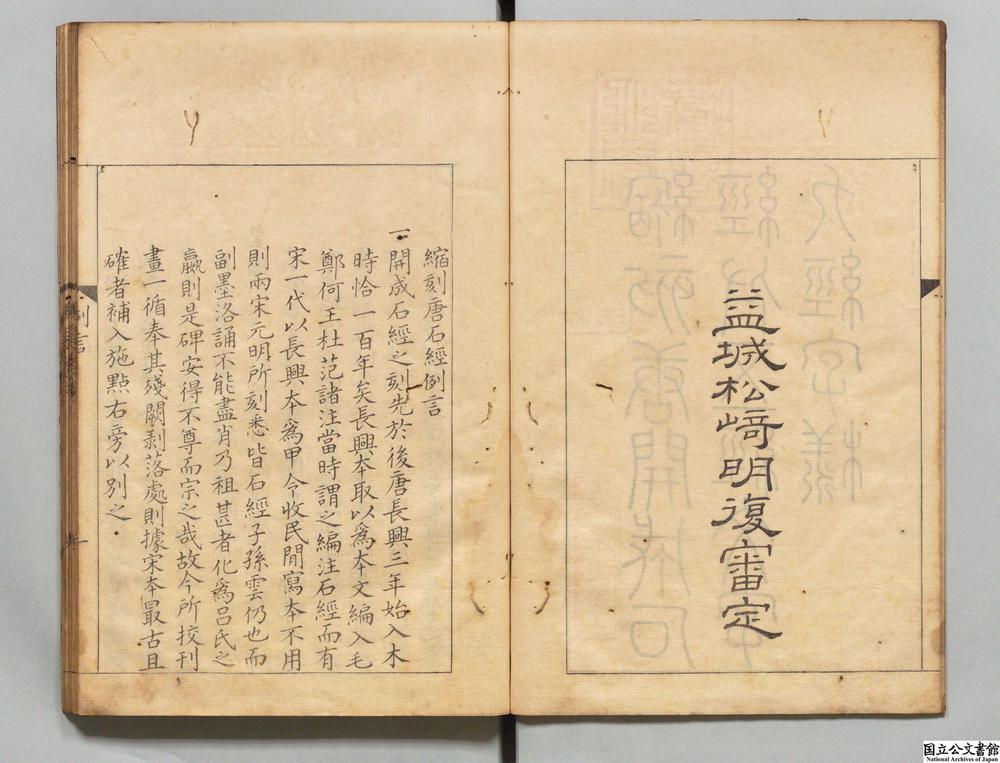 益城松﨑明復審定
縮刻唐石經例言
一開成石經之刻先於後唐長興三年始入木
時恰一百年矣長興本取以爲本文編入毛
鄭何王杜范諸注當時謂之編注石經而有
宋一代以長興本爲甲令收民間寫本不用
則兩宋元明所刻悉皆石經子孫雲仍也而
副墨洛誦不能盡肖乃祖甚者化爲呂氏之
嬴則是碑安得不尊而宗之哉故今所挍刊
畫一循奉其殘闕剥落處則據宋本最古且
確者補入施點右旁以別之
例言
一
国立公文書館
National Archives of Japan